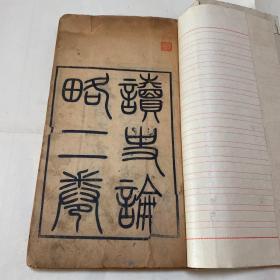 讀史論
略二卷